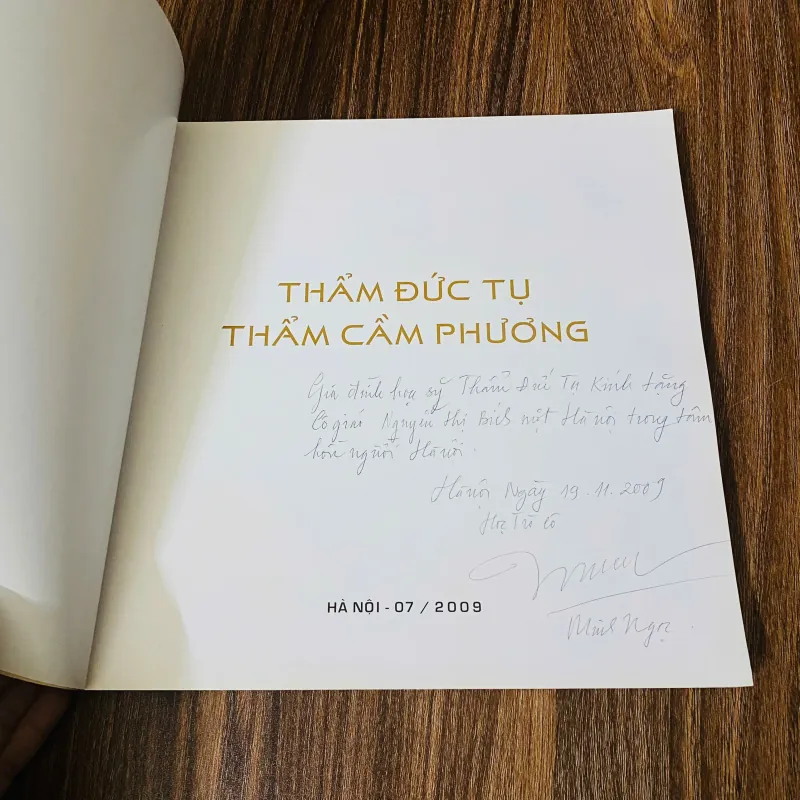 THẨM ĐỨC TỤ
THẨM CẦM PHƯƠNG
Gia đình họa sỹ Thẩm Đức Tụ Kính tặng
Cô giáo Nguyễn Thị Bích một Hà nội trong tâm
hồn người Hà nội.
Hà nội Ngày 19.11.2009
Học Trò cô
Minh Ngọc.
HÀ NỘI - 07 / 2009